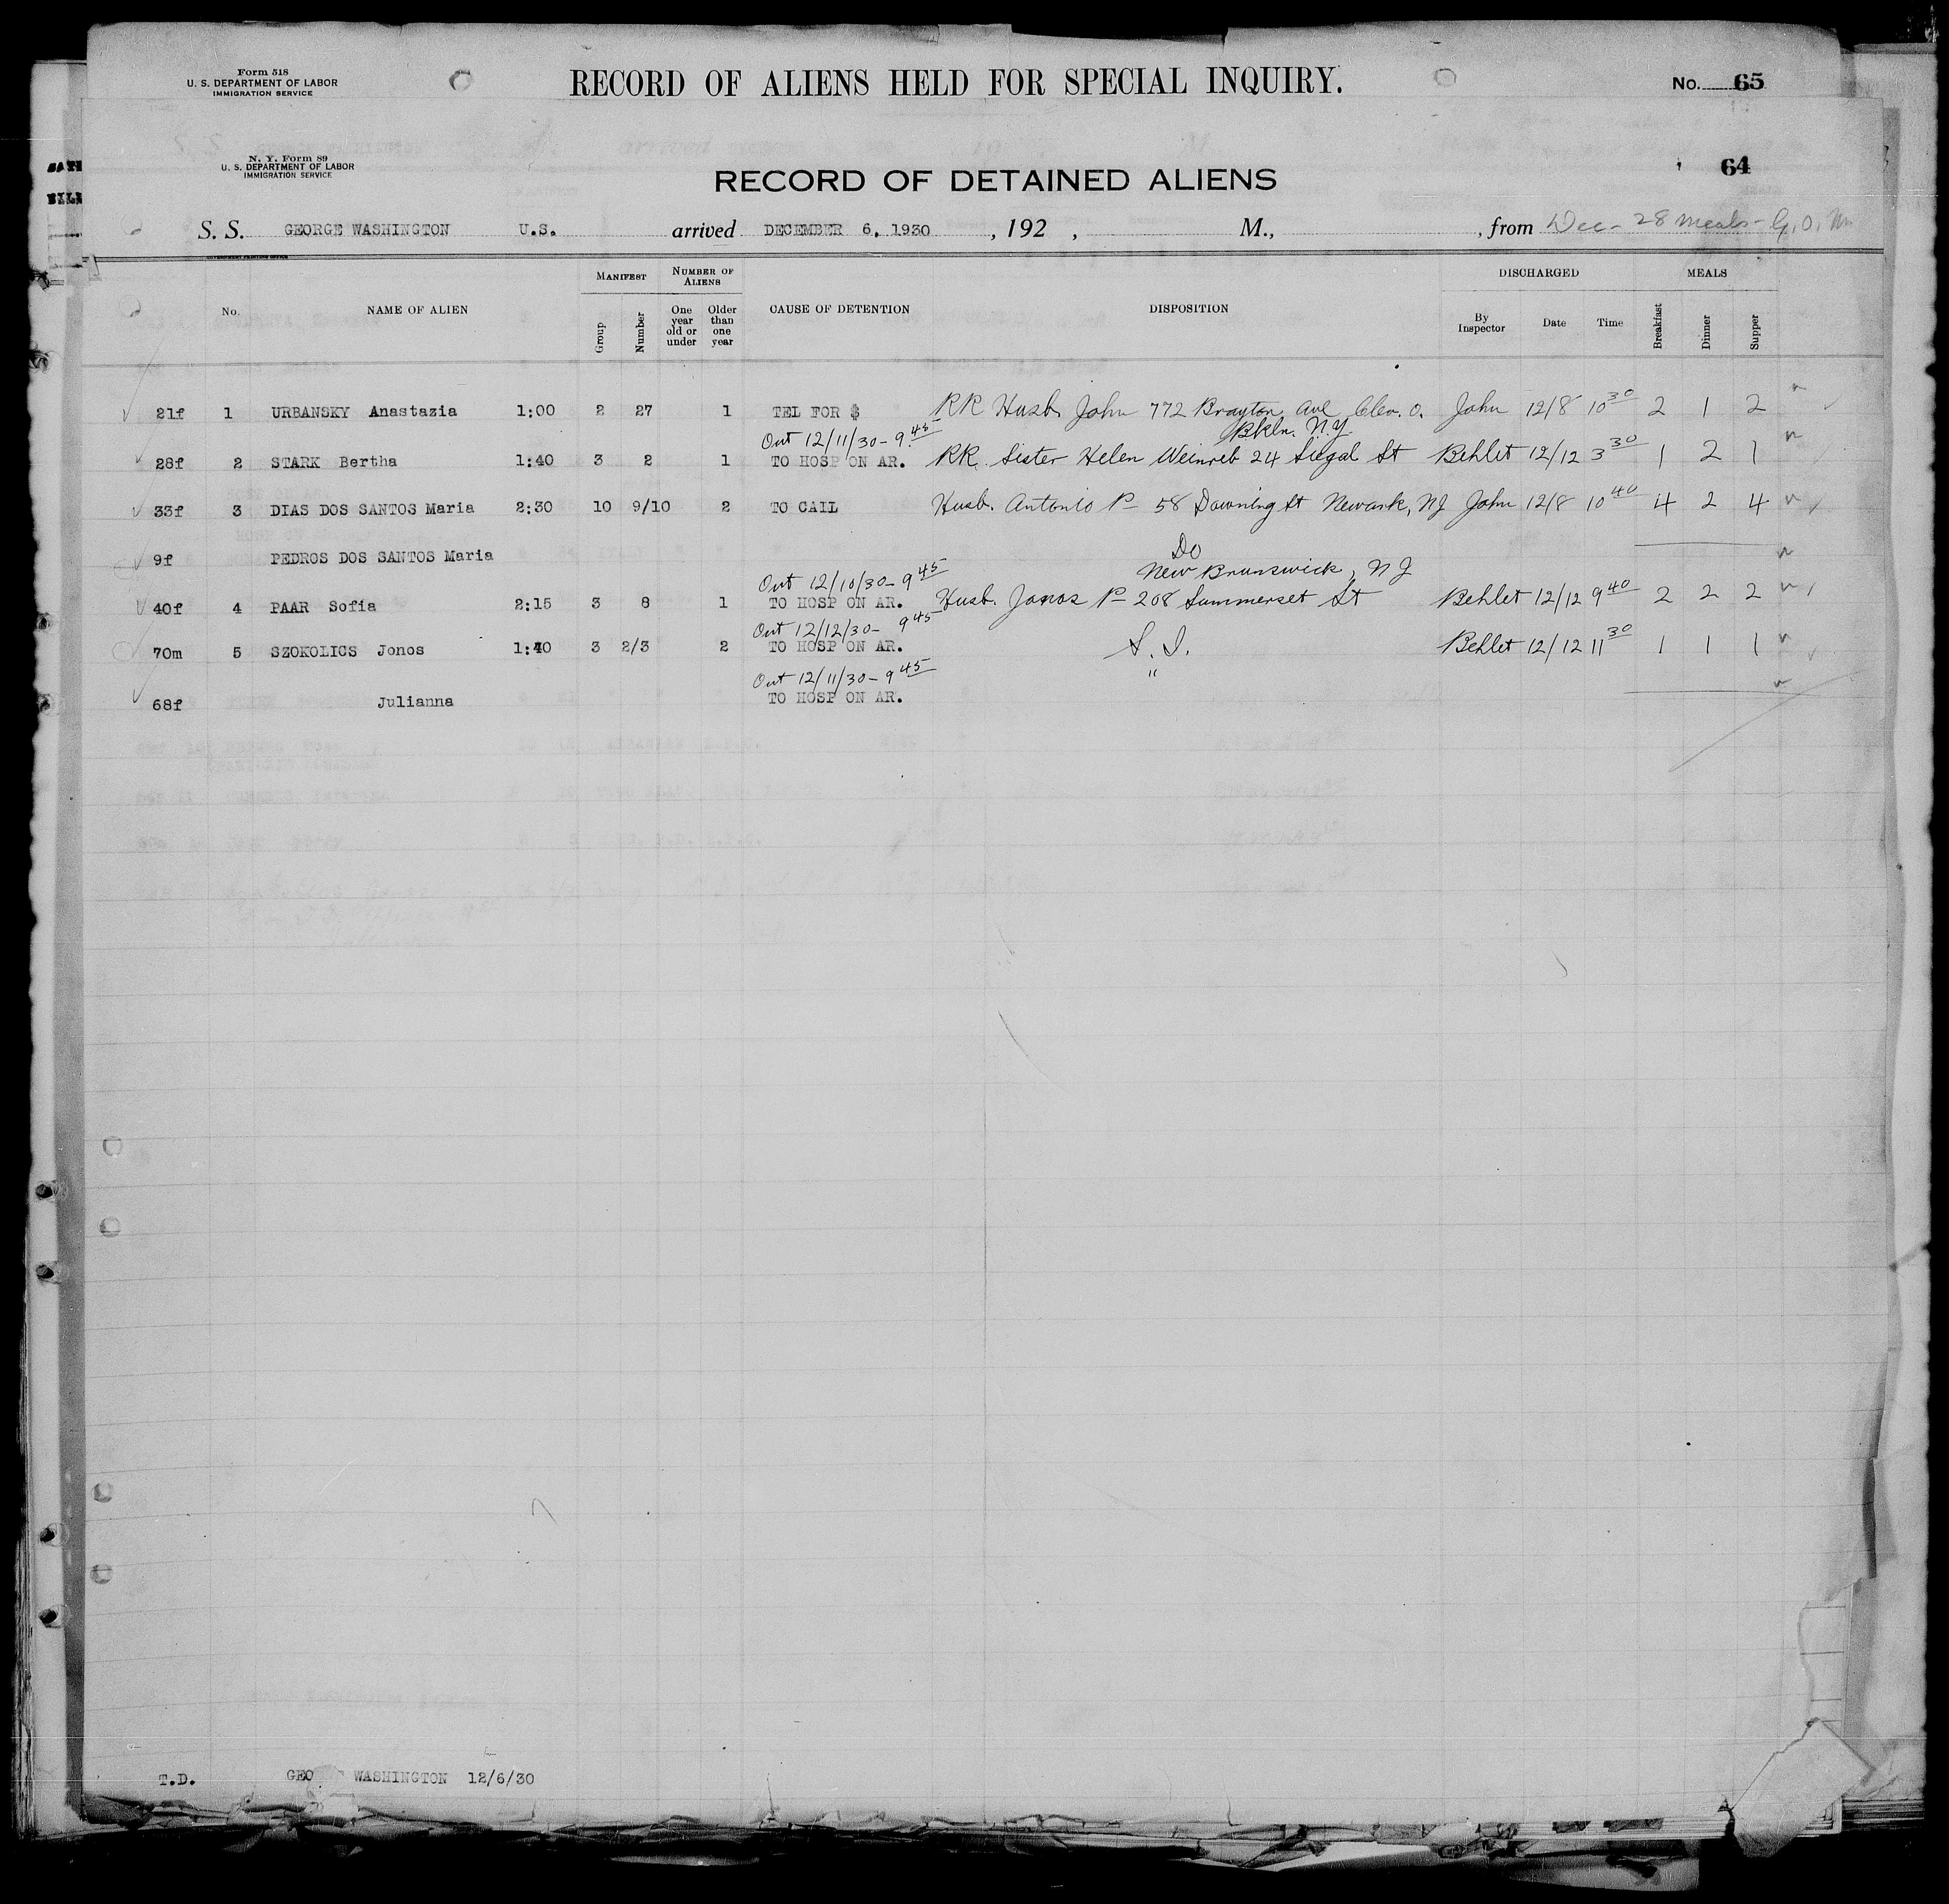 Form 518
U. S. DEPARTMENT OF LABOR
IMMIGRATION SERVICE
RECORD OF ALIENS HELD FOR SPECIAL INQUIRY.
No. 65
N. Y. Form 89
U. S. DEPARTMENT OF LABOR
IMMIGRATION SERVICE
64
RECORD OF DETAINED ALIENS
S. S. GEORGE WASHINGTON U.S. arrived DECEMBER 6, 1930 , 192 , M., , from Dec - 28 meals - G. O.
No. NAME OF ALIEN MANIFEST Group Number NUMBER OF ALIENS One year old or under Older than one year CAUSE OF DETENTION DISPOSITION DISCHARGED By Inspector Date Time MEALS Breakfast Dinner Supper
21f 1 URBANSKY Anastazia 1:00 2 27 1 TEL FOR $ RR Husb. John 772 Brayton Ave Clev. O. John 12/8 10 30 2 1 2
Out 12/11/30 - 9 45 Bkln. N.Y.
28f 2 STARK Bertha 1:40 3 2 1 TO HOSP ON AR. RR. Sister Helen Weinreb 24 Siegal St Behlet 12/12 3 30 1 2 1
33f 3 DIAS DOS SANTOS Maria 2:30 10 9/10 2 TO CAIL Husb. Antonio P 58 Downing St Newark, NJ John 12/8 10 40 4 2 4
9f PEDROS DOS SANTOS Maria Do
Out 12/10/30 - 9 45 New Brunswick, NJ
40f 4 PAAR Sofia 2:15 3 8 1 TO HOSP ON AR. Husb. Janos P 208 Summerset St Behlet 12/12 9 40 2 2 2
Out 12/12/30 - 9 45
70m 5 SZOKOLICS Jonos 1:40 3 2/3 2 TO HOSP ON AR. S. I. Behlet 12/12 11 30 1 1 1
Out 12/11/30 - 9 45 "
68f Julianna TO HOSP ON AR.
T.D. GEO WASHINGTON 12/6/30